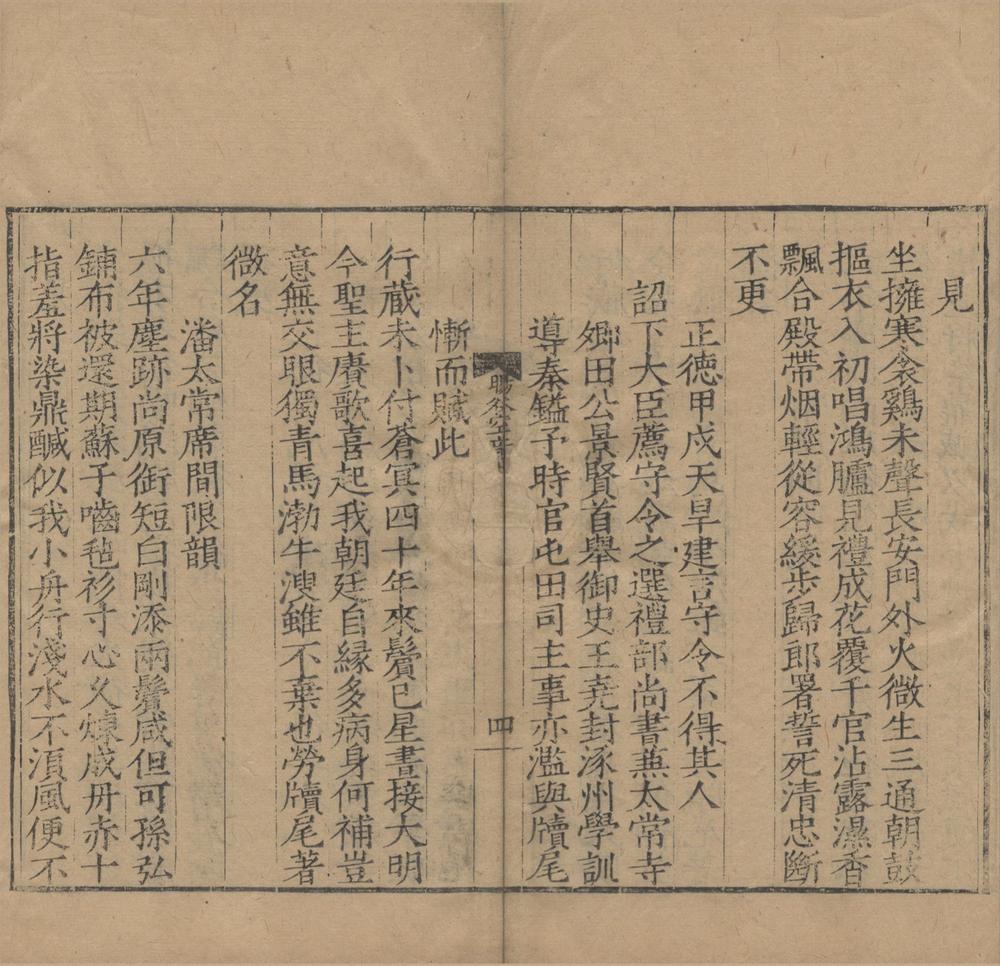 見
坐擁寒衾鷄未聲長安門外火微生三通朝鼓
摳衣入初唱鴻臚見禮成花覆千官沾露濕香
飄合殿帶烟輕從容緩步歸郎署誓死清忠斷
不更
正德甲戌天旱建言守令不得其人
詔下大臣薦守令之選禮部尚書兼太常寺
鄉田公景賢首舉御史王堯封涿州學訓
導秦鎰予時官屯田司主事亦濫與牘尾
慚而賦此
行藏未卜付蒼冥四十年來鬢已星晝接大明
今聖主賡歌喜起我朝廷自緣多病身何補豈
意無交眼獨青馬渤牛溲雖不棄也勞牘尾著
微名
潘太常席間限韻
六年塵跡尚原銜短白剛添兩鬢咸但可孫弘
鋪布被還期蘇子嚙氊衫寸心久煉成丹赤十
指羞將染鼎醎似我小舟行淺水不湏風便不
四